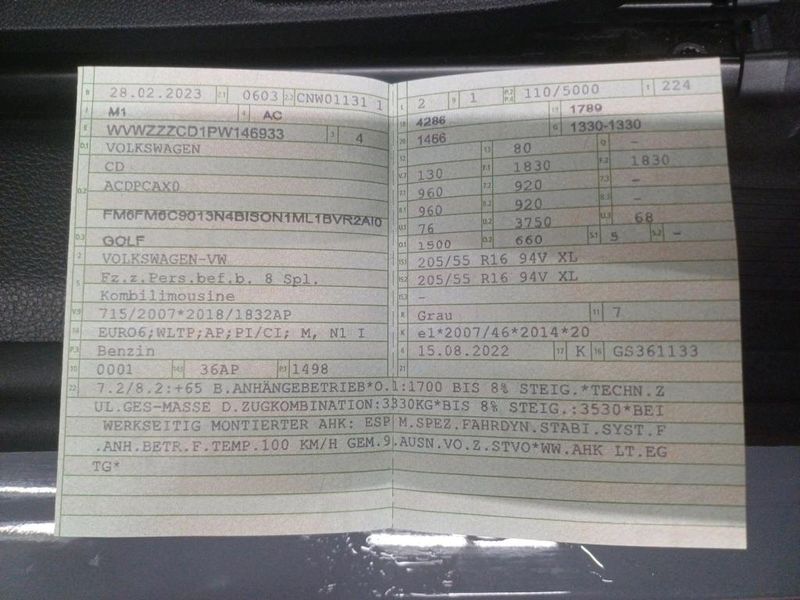 B 28.02.2023 2.1 0603 2.2 CNW01131 1
J M1 4 AC
E WVWZZZCD1PW146933 3 4
D.1 VOLKSWAGEN
CD
D.2 ACDPCAX0
FM6FM6C9013N4BISON1ML1BVR2AI0
D.3 GOLF
2 VOLKSWAGEN-VW
5 Fz.z.Pers.bef.b. 8 Spl.
Kombilimousine
V.9 715/2007*2018/1832AP
14 EURO6;WLTP;AP;PI/CI; M, N1 I
P.3 Benzin
10 0001 14.1 36AP P.1 1498
L 2 9 1 P.2 P.4 110/5000 T 224
18 4286 19 1789
20 1466 G 1330-1330
12 - 13 80 Q -
V.7 130 F.1 1830 F.2 1830
7.1 960 7.2 920 7.3 -
8.1 960 8.2 920 8.3 -
U.1 76 U.2 3750 U.3 68
O.1 1500 O.2 660 S.1 5 S.2 -
15.1 205/55 R16 94V XL
15.2 205/55 R16 94V XL
15.3 -
R Grau 11 7
K e1*2007/46*2014*20
6 15.08.2022 17 K 16 GS361133
21
22 7.2/8.2:+65 B.ANHÄNGEBETRIEB*O.1:1700 BIS 8% STEIG.*TECHN.Z
UL.GES-MASSE D.ZUGKOMBINATION:3330KG*BIS 8% STEIG.:3530*BEI
WERKSEITIG MONTIERTER AHK: ESP M.SPEZ.FAHRDYN.STABI.SYST.F
.ANH.BETR.F.TEMP.100 KM/H GEM.9.AUSN.VO.Z.STVO*WW.AHK LT.EG
TG*